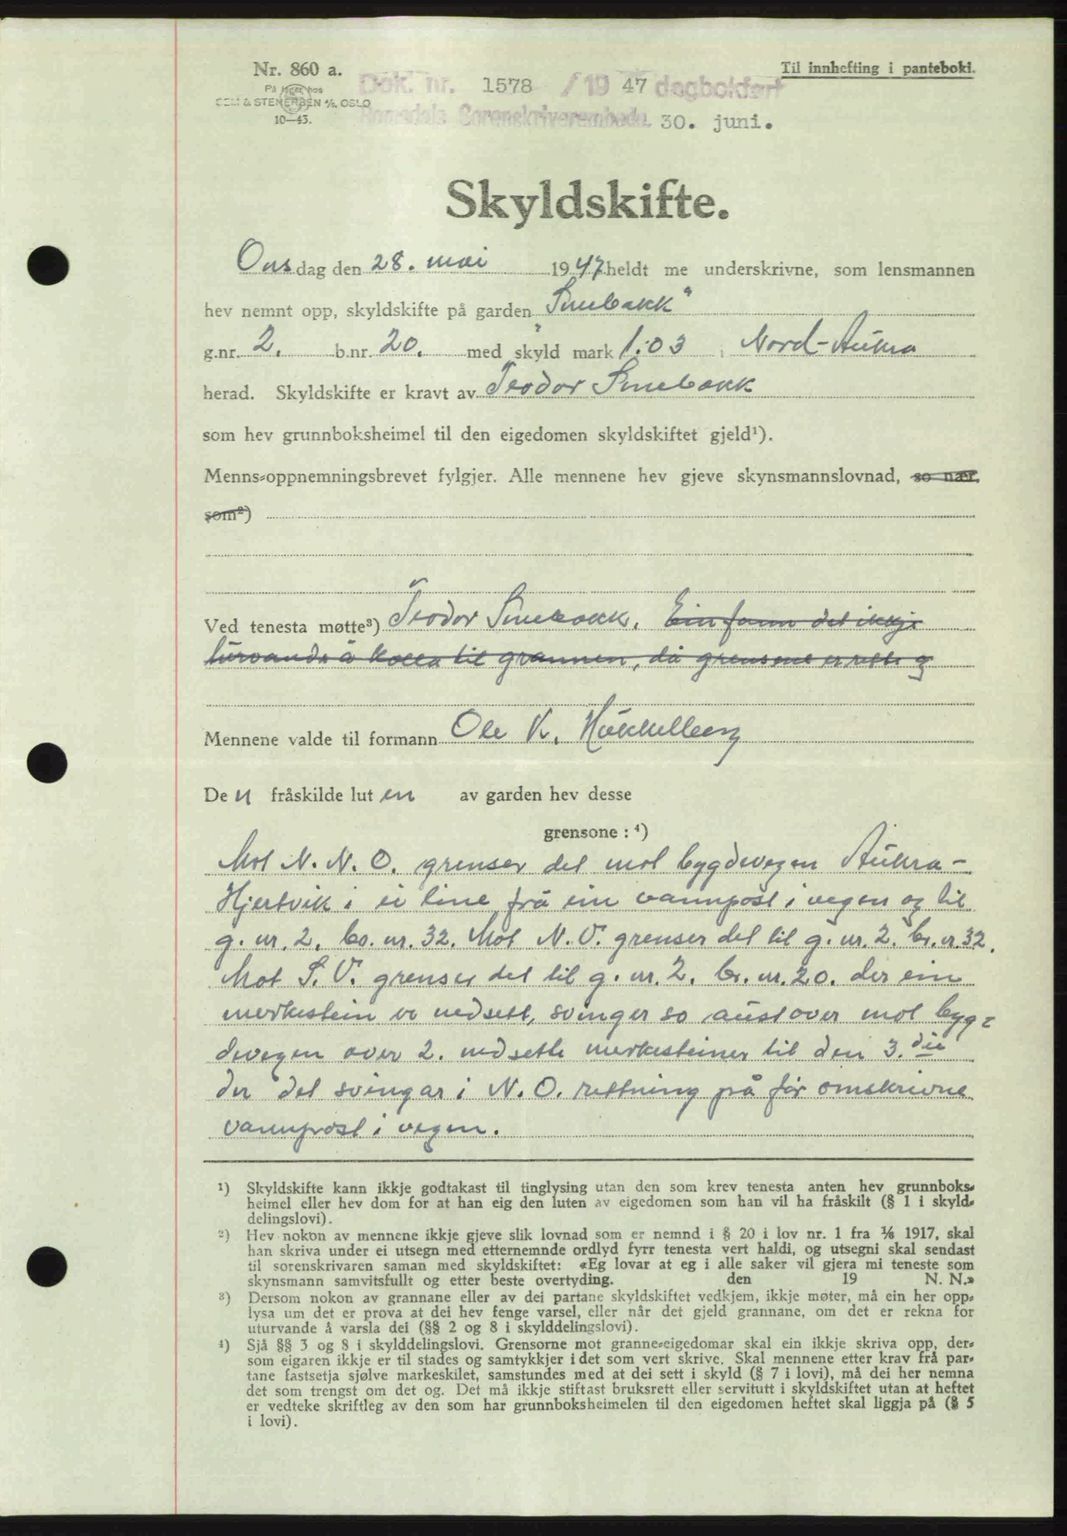 Nr. 860 a.
På lager hos
SEM & STENERSEN A/S, OSLO
10—43.
Til innhefting i panteboki.
Dok. nr. 1578 /19 47 dagbokført
Romsdals Sorenskriverembede. 30. juni.
Skyldskifte.
Onsdag den 28. mai 1947 heldt me underskrivne, som lensmannen
hev nemnt opp, skyldskifte på garden "Smebakk"
g.nr. 2. b.nr. 20. med skyld mark 1.03 i Nord-Aukra
herad. Skyldskifte er kravt av Teodor Smebakk
som hev grunnboksheimel til den eigedomen skyldskiftet gjeld¹).
Menns-oppnemningsbrevet fylgjer. Alle mennene hev gjeve skynsmannslovnad, so nær
som²)
Ved tenesta møtte³) Teodor Smebakk. Ein fann det ikkje
turvande å kalla til grannen, då grensene er rette og
Mennene valde til formann Ole K. Hukkelberg
De n fråskilde lut en av garden hev desse
grensone : ⁴)
Mot N. N. O. grenser det mot bygdevegen Aukra-
Hjertvik i ei line frå ein vannpost i vegen og til
g. nr. 2. br. nr. 32. Mot N. V. grenser det til g. nr. 2. br. nr 32.
Mot S. V. grenser det til g. nr. 2. br. nr. 20. der ein
merkestein er nedsett, svinger so austover mot byg=
devegen over 2. nedsette merkesteiner til den 3. die
der det svingar i N. O. rettning på før omskrivne
vannpost i vegen.
¹) Skyldskifte kann ikkje godtakast til tinglysing utan den som krev tenesta anten hev grunnboks-
heimel eller hev dom for at han eig den luten av eigedomen som han vil ha fråskilt (§ 1 i skyld-
delingslovi).
²) Hev nokon av mennene ikkje gjeve slik lovnad som er nemnd i § 20 i lov nr. 1 fra ⅛ 1917, skal
han skriva under ei utsegn med etternemnde ordlyd fyrr tenesta vert haldi, og utsegni skal sendast
til sorenskrivaren saman med skyldskiftet: «Eg lovar at eg i alle saker vil gjera mi teneste som
skynsmann samvitsfullt og etter beste overtyding. den 19 N. N.»
³) Dersom nokon av grannane eller av dei partane skyldskiftet vedkjem, ikkje møter, må ein her opp-
lysa um det er prova at dei hev fenge varsel, eller når det gjeld grannane, om det er rekna for
uturvande å varsla dei (§§ 2 og 8 i skylddelingslovi).
⁴) Sjå §§ 3 og 8 i skylddelingslovi. Grensorne mot granne-eigedomar skal ein ikkje skriva opp, der-
som eigaren ikkje er til stades og samtykkjer i det som vert skrive. Skal mennene etter krav frå par-
tane fastsetja sjølve markeskilet, samstundes med at dei sett i skyld (§ 7 i lovi), må dei her nemna
det som trengst om det og. Det må ikkje stiftast bruksrett eller servitutt i skyldskiftet utan at heftet
er vedteke skriftleg av den som har grunnboksheimelen til den eigedomen heftet skal liggja på (§ 5
i lovi).